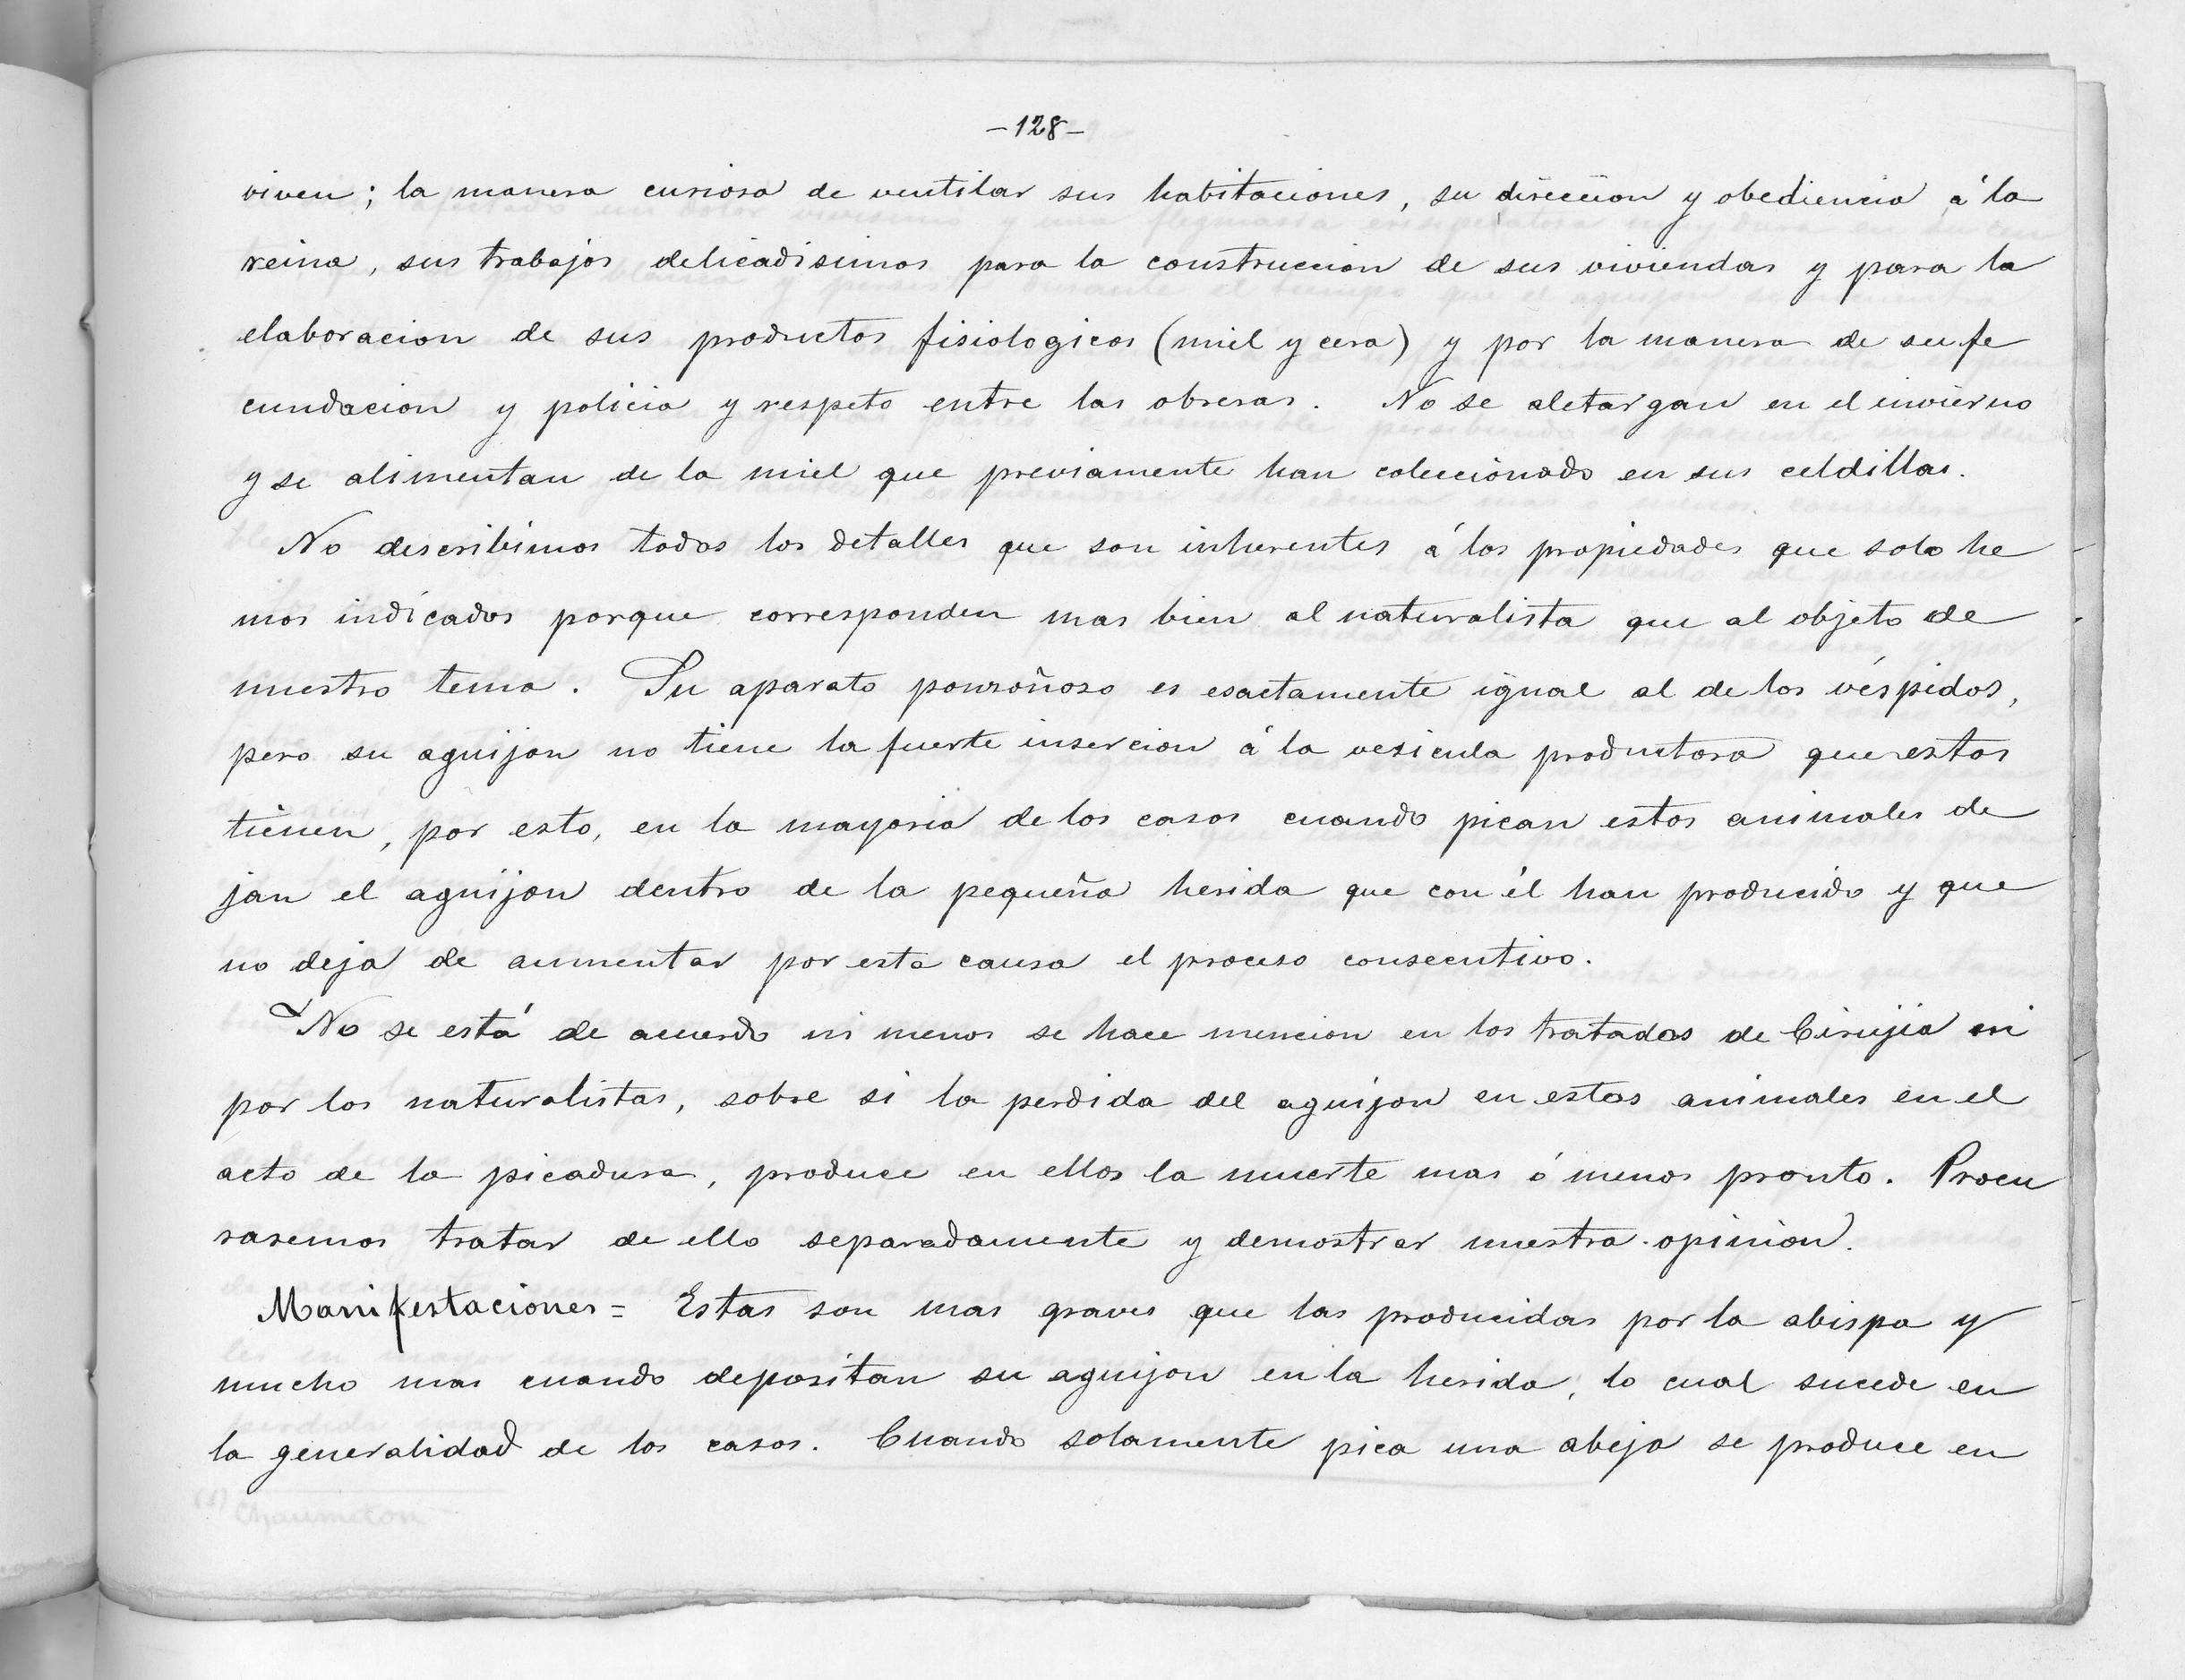 -128-
viven; la manera curiosa de ventilar sus habitaciones, su direccion y obediencia á la
reina, sus trabajos delicadisimos para la construccion de sus viviendas y para la
elaboracion de sus productos fisiologicos (miel y cera) y por la manera de su fe
cundacion y policia y respeto entre las obreras. No se aletargan en el invierno
y se alimentan de la miel que previamente han coleccionado en sus celdillas.
No describimos todos los detalles que son inherentes á las propiedades que solo he
mos indicados porque corresponden mas bien al naturalista que al objeto de
nuestro tema. Su aparato ponzoñoso es esactamente igual al de los véspidos,
pero su aguijon no tiene la fuerte insercion á la vesicula productora que estos
tienen, por esto, en la mayoria de los casos cuando pican estos animales de
jan el aguijon dentro de la pequeña herida que con él han producido y que
no deja de aumentar por esta causa el proceso consecutivo.
No se está de acuerdo ni menos se hace mencion en los tratados de Cirujia ni
por los naturalistas, sobre si la perdida del aguijon en estos animales en el
acto de la picadura, produce en ellos la muerte mas ó menos pronto. Procu
raremos tratar de ello separadamente y demostrar nuestra opinion.
Manifestaciones = Estas son mas graves que las producidas por la abispa y
mucho mas cuando depositan su aguijon en la herida, lo cual sucede en
la generalidad de los casos. Cuando solamente pica una abeja se produce en